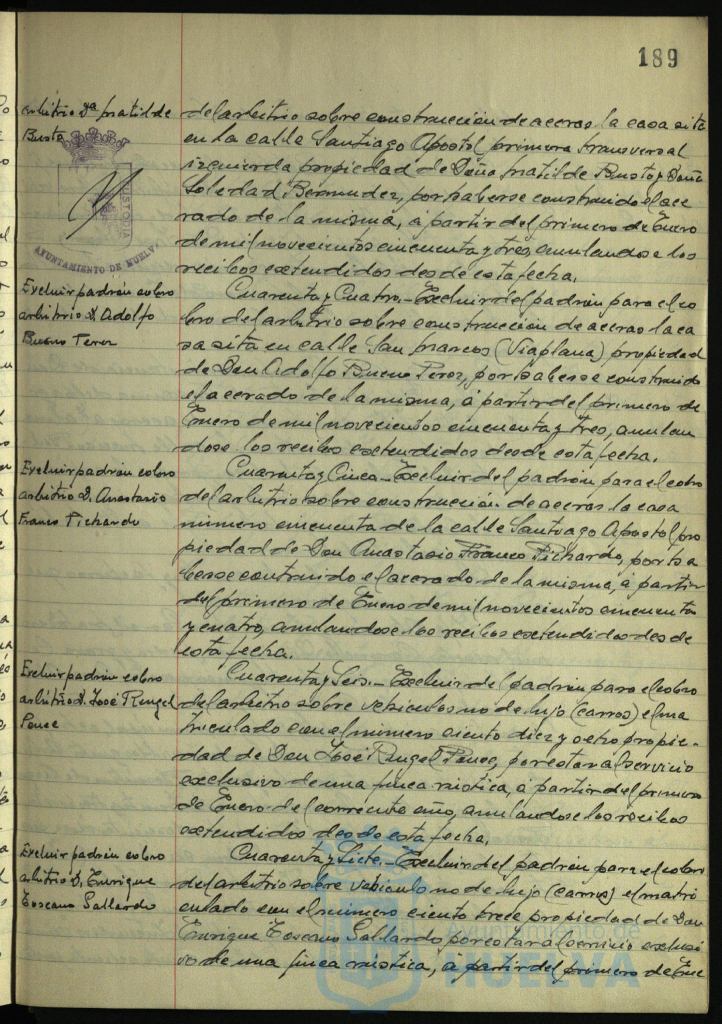 189
arbitrio Dª Matilde
Busto
AYUNTAMIENTO DE HUELVA
del arbitrio sobre construcción de aceras la casa sita
en la calle Santiago Apostol, primera transversal
izquierda propiedad de Doña Matilde Busto y Doña
Soledad Bermudez, por haberse construido el ace
rado de la misma, á partir del primero de Enero
de mil novecientos cincuenta y tres, anulandose los
recibos extendidos desde esta fecha.
Excluir padrón cobro
arbitrio D. Adolfo
Bueno Perez
Cuarenta y Cuatro.- Excluir del padrón para el co
bro del arbitrio sobre construcción de aceras la ca
sa sita en calle San Marcos (Viaplana) propiedad
de Don Adolfo Bueno Perez, por haberse construido
el acerado de la misma, á partir del primero de
Enero de mil novecientos cincuenta y tres, anulan
dose los recibos extendidos desde esta fecha.
Excluir padrón cobro
arbitrio D. Anastasio
Franco Pichardo
Cuarenta y Cinco.- Excluir del padrón para el cobro
del arbitrio sobre construcción de aceras la casa
número cincuenta de la calle Santiago Apostol pro
piedad de Don Anastasio Franco Pichardo, por ha
berse contruido el acerado de la misma, á partir
del primero de Enero de mil novecientos cincuenta
y cuatro, anulandose los recibos extendidos desde
esta fecha.
Excluir padrón cobro
arbitrio D. José Rengel
Ponce
Cuarenta y Seis.- Excluir del padrón para el cobro
del arbitro sobre vehiculos no de lujo (carros) el ma
triculado con el número ciento diez y ocho propie-
dad de Don José Rengel Ponce, por estar al servicio
exclusivo de una finca rústica, á partir del primero
de Enero del corriente año, anulandose los recibos
extendidos desde esta fecha.
Excluir padrón cobro
arbitrio D. Enrique
Toscano Gallardo
Cuarenta y Siete.- Excluir del padrón para el cobro
del arbitrio sobre vehiculo no de lujo (carros) el matri
culado con el número ciento trece propiedad de Don
Enrique Toscano Gallardo por estar al servicio exclusi
vo de una finca rústica, á partir del primero de Ene
Ayuntamiento de
HUELVA